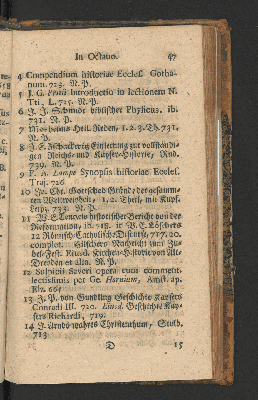 In Octavo. 47
4 Compendium historiae Eccles. Gotha-
num. 723. N. P.
5 J. G. Pritii Introductio in lectionem N.
Tti, L. 725. N. P.
6 J. J. Schmidt biblischer Physicus. ib.
731. N. P.
7 Mosheims Heil. Reden, 1. 2. 3. Th. 731.
N. P.
8 J. E. Einleitung zur vollständi-
gen Reichs- und Kayser-Historie, Rud.
739. N. P.
9 F. A. Lampe Synopsis historiae Eccles.
Traj. 726
10 Jo. Chr. Gottsched Gründe der gesamm-
ten Weltweisheit, 1. 2. Theil, mit Kupf.
Leipz. 735. N. P.
11 W. E. Tenzels historischer Bericht von der
Reformation, ib. 718. it V. E. Löschers
12 Römisch-Catholische Discurse, 717. 20.
complet. Hilschers Nachricht zum Ju-
bel-Fest. Kirchen-Historie von Alt-
Dresden et alia. N. P.
12 Sulpicii Severi opera cum comment.
lectissimis per Ge. Hornium, Amst. ap.
Elz. 665
13 J. P. von Gundling Geschichte Kaysers
Conradi III. 720. Eiusd. Geschichte Kay-
sers Richardi, 719.
14 J. Arnds wahres Christenthum, Stutb.
713
D 15